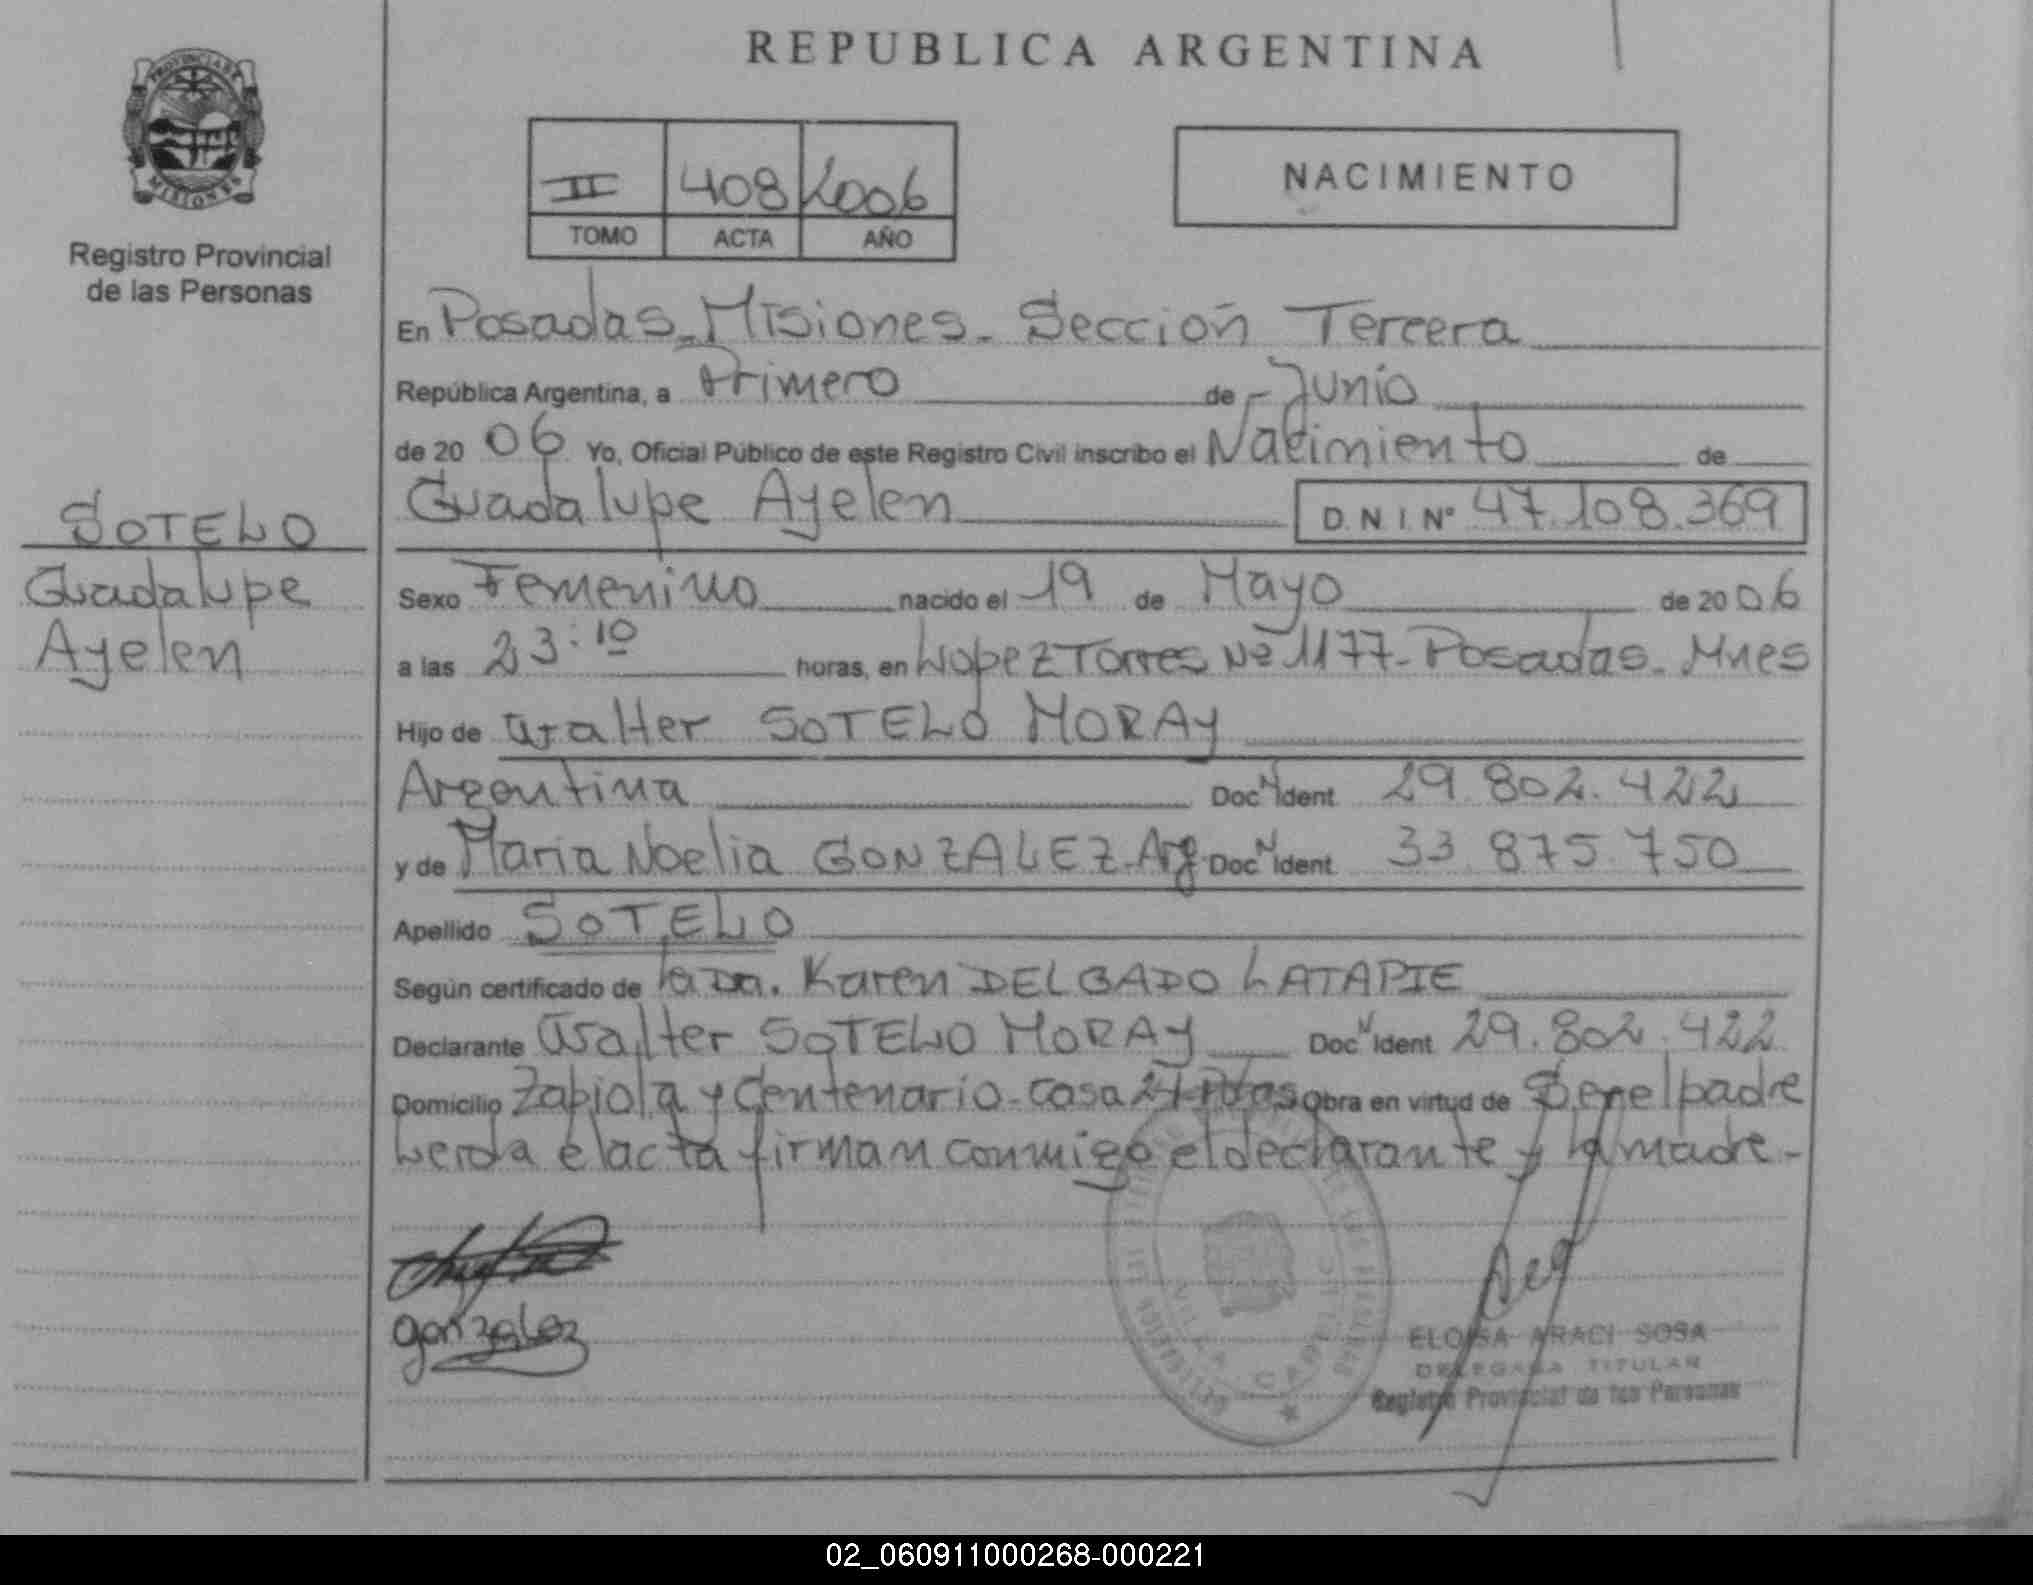 REPUBLICA ARGENTINA
PROVINCIA DE
MISIONES
Registro Provincial
de las Personas
II 408 2006
TOMO ACTA AÑO
NACIMIENTO
En Posadas_Misiones_ Sección Tercera
República Argentina, a Primero de Junio
de 20 06 Yo, Oficial Público de este Registro Civil inscribo el Nacimiento de
Guadalupe Ayelen D.N.I.Nº 47.108.369
SOTELO
Guadalupe
Ayelen
Sexo Femenino nacido el 19 de Mayo de 20 06
a las 23:10 horas, en Lopez Torres Nº 1177- Posadas_ Mnes
Hijo de Walter SOTELO MORAY
Argentina Doc N Ident 29.802.422
y de Maria Noelia GONZALEZ-Arg Doc N Ident 33.875.750
Apellido SOTELO
Según certificado de la Dra. Karen DELGADO LATAPIE
Declarante Walter SOTELO MORAY Doc N Ident 29.802.422
Domicilio Zapiola y Centenario-casa Pdas Obra en virtud de Ser el padre
Leida el acta firman conmigo el declarante y la madre-
gonzalez
ELOISA ARACI SOSA
DELEGADA TITULAR
Registro Provincial de las Personas
02_060911000268-000221